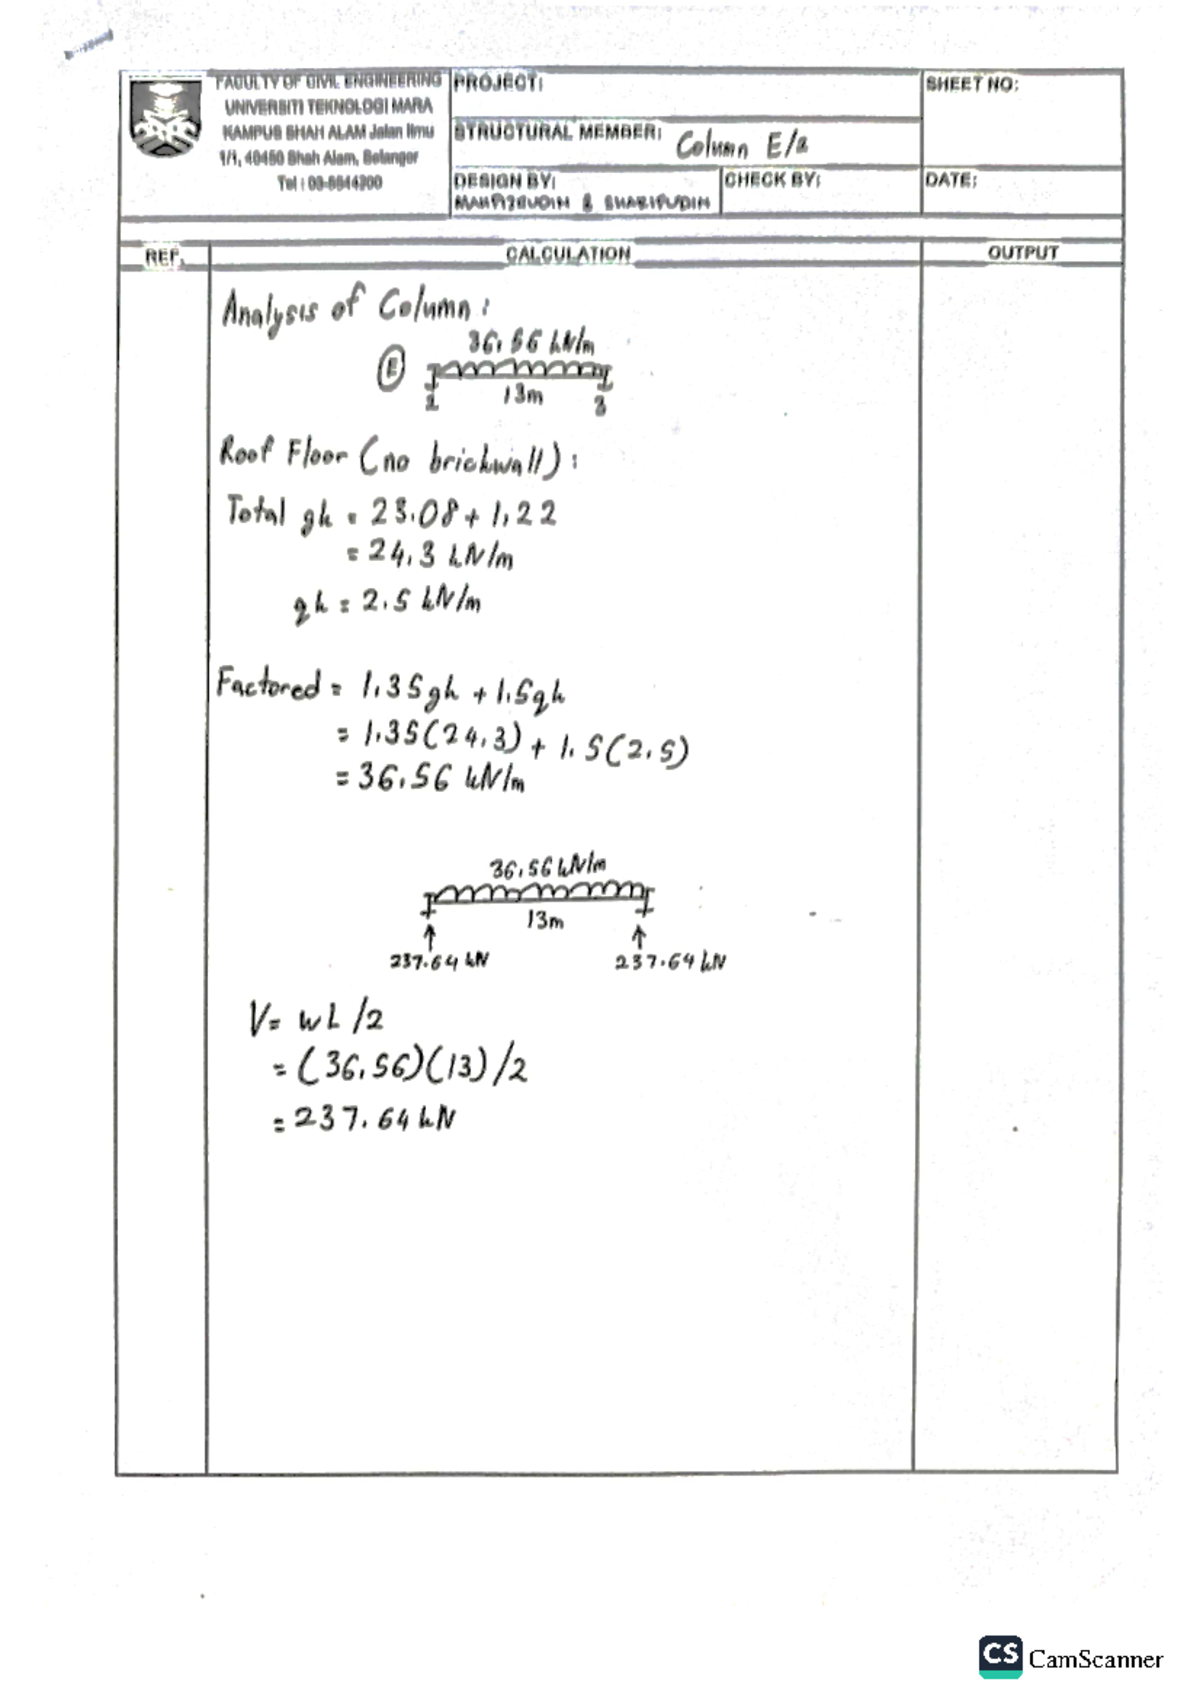 FACULTY OF CIVIL ENGINEERING
UNIVERSITI TEKNOLOGI MARA
KAMPUS SHAH ALAM Jalan Ilmu
1/1, 40450 Shah Alam, Selangor
Tel : 03-5544200
PROJECT:
STRUCTURAL MEMBER: Column E/2
DESIGN BY:
& SHARIFUDIN
CHECK BY:
SHEET NO:
DATE:
REF. CALCULATION OUTPUT
Analysis of Column:
36.56 kN/m
E
13m
2 3
Roof Floor (no brickwall):
Total gk = 23.08 + 1.22
= 24.3 kN/m
qk = 2.5 kN/m
Factored = 1.35gk + 1.5qk
= 1.35(24.3) + 1.5(2.5)
= 36.56 kN/m
36.56 kN/m
13m
237.64 kN 237.64 kN
V = wL/2
= (36.56)(13)/2
= 237.64 kN
CS CamScanner